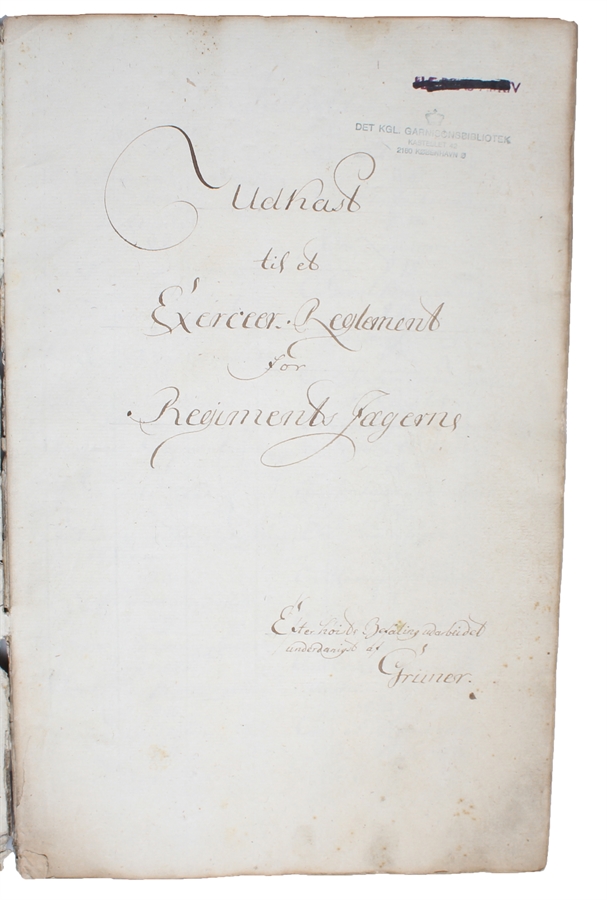 DET KGL. GARNISONSBIBLIOTEK
KASTELLET 46
2100 KØBENHAVN Ø
Udkast
til et
Exerceer-Reglement
for
Regiments Jægerne
Efter høiste Befaling udarbeidet
underdanigst af
Grüner.